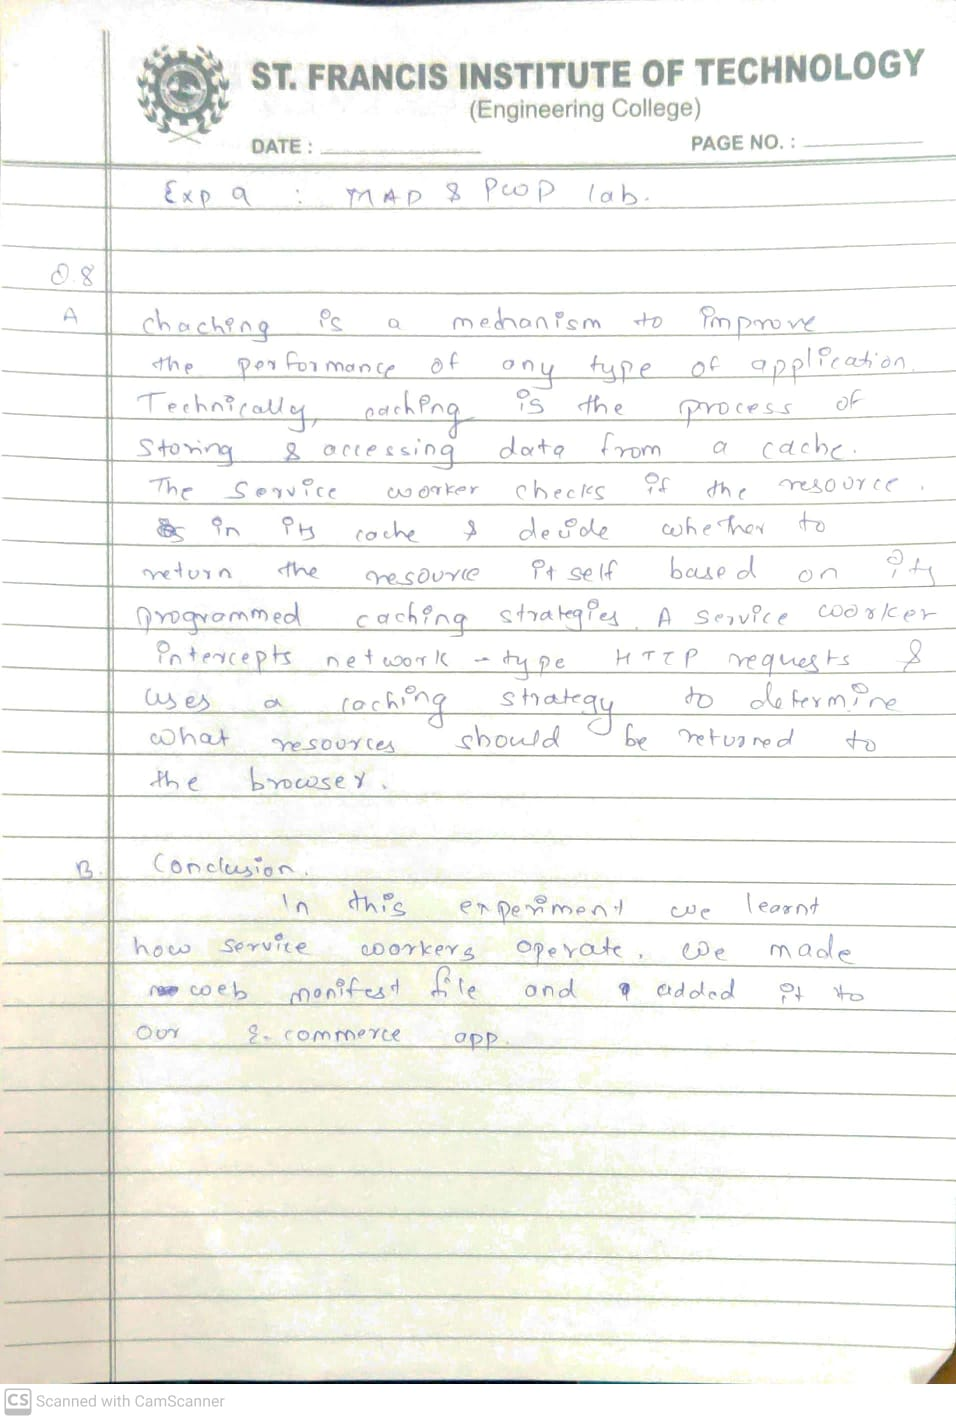 ST. FRANCIS INSTITUTE OF TECHNOLOGY
(Engineering College)
DATE :
PAGE NO. :
Exp 9 : MAD & PWP lab.
Q.8
A chaching is a mechanism to improve
the performance of any type of application.
Technically, caching is the process of
storing & accessing data from a cache.
The Service worker checks if the resource.
in its cache & decide whether to
return the resource itself based on its
programmed caching strategies. A service worker
intercepts network-type HTTP requests &
uses a caching strategy to determine
what resources should be returned to
the browser.
B. Conclusion.
In this experiment we learnt
how service workers operate. We made
web manifest file and added it to
our E-commerce app.
CS Scanned with CamScanner